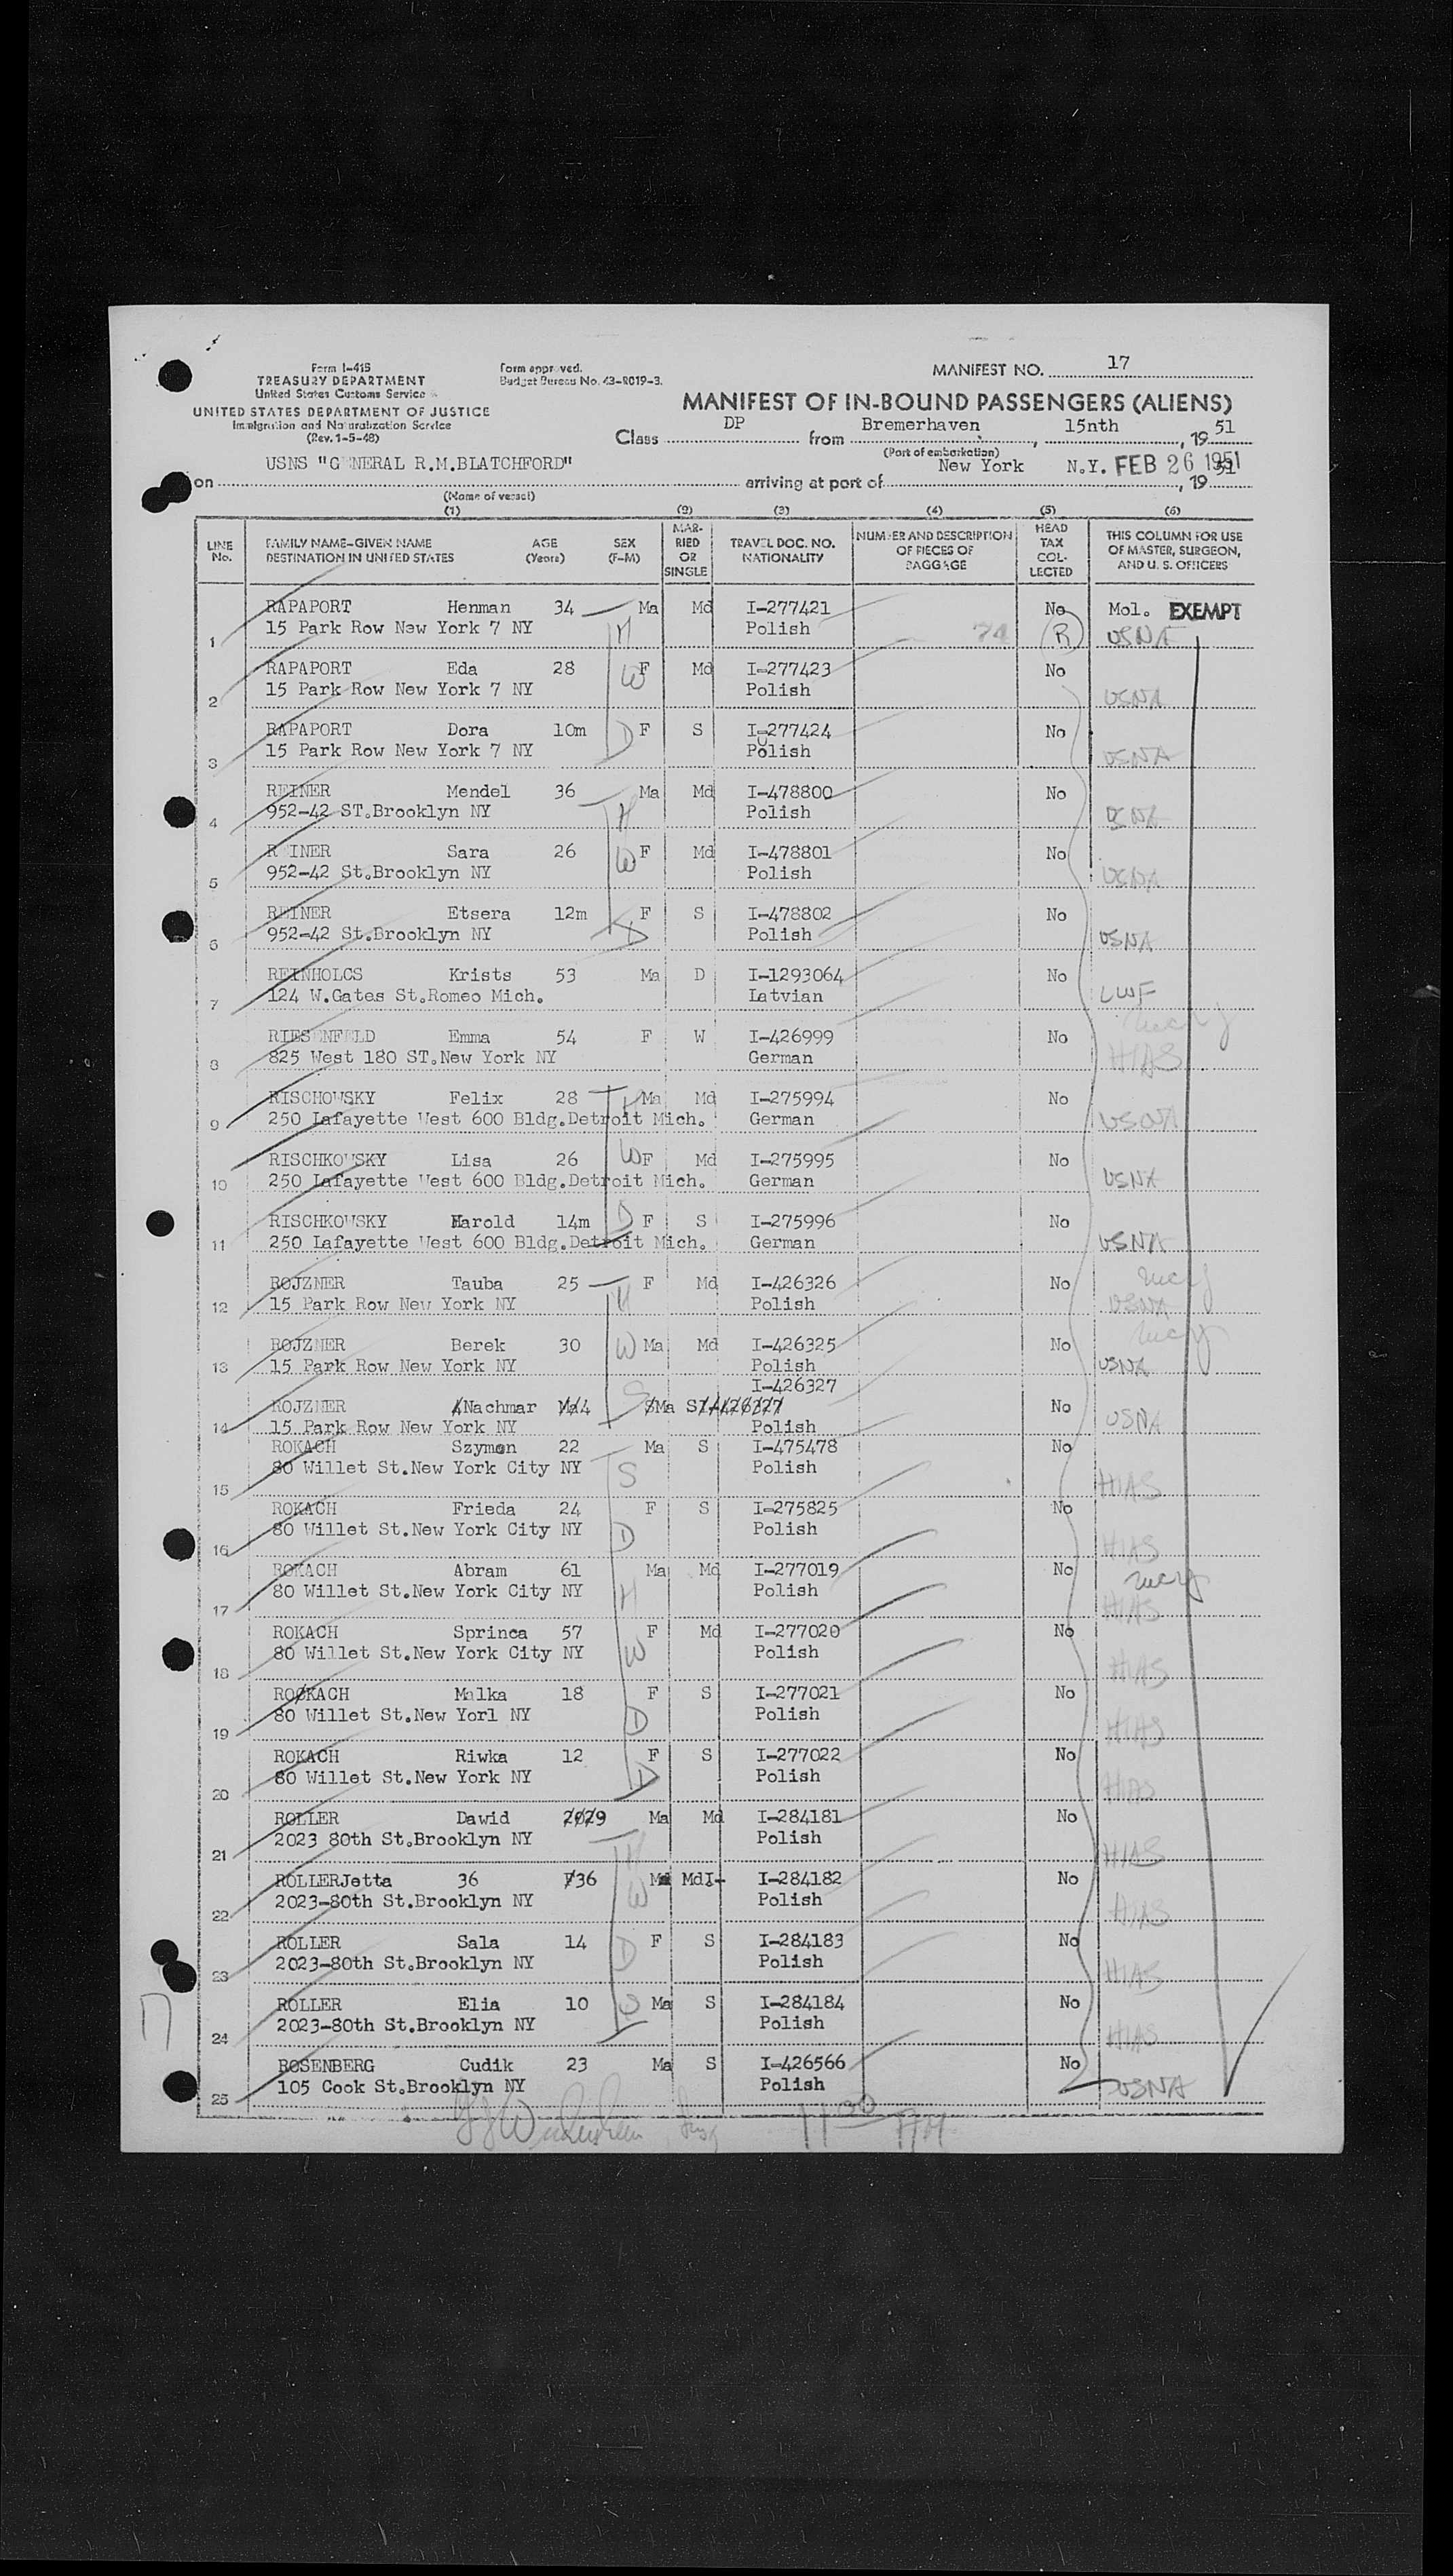 Form I-415
TREASURY DEPARTMENT
United States Customs Service
UNITED STATES DEPARTMENT OF JUSTICE
Immigration and Naturalization Service
(Rev. 1-5-48)
Form approved.
Budget Bureau No. 43-R019-3.
MANIFEST NO. 17
MANIFEST OF IN-BOUND PASSENGERS (ALIENS)
Class DP from Bremerhaven, 15nth, 19 51
(Port of embarkation)
on USNS "GENERAL R.M.BLATCHFORD" arriving at port of New York N.Y. FEB 26 1951, 19 51
(Name of vessel)
(1) (2) (3) (4) (5) (6)
LINE No. FAMILY NAME-GIVEN NAME DESTINATION IN UNITED STATES AGE (Years) SEX (F-M) MARRIED OR SINGLE TRAVEL DOC. NO. NATIONALITY NUMBER AND DESCRIPTION OF PIECES OF BAGGAGE HEAD TAX COLLECTED THIS COLUMN FOR USE OF MASTER, SURGEON, AND U. S. OFFICERS
RAPAPORT Henman 34 Ma Md I-277421 No Mol. EXEMPT
1 15 Park Row New York 7 NY H Polish 74 R USNA
RAPAPORT Eda 28 W F Md I-277423 No
2 15 Park Row New York 7 NY Polish USNA
RAPAPORT Dora 10m D F S I-277424 No
3 15 Park Row New York 7 NY Polish USNA
REINER Mendel 36 Ma Md I-478800 No
4 952-42 ST.Brooklyn NY H Polish USNA
R INER Sara 26 W F Md I-478801 No
5 952-42 St.Brooklyn NY Polish USNA
REINER Etsera 12m F S I-478802 No
6 952-42 St.Brooklyn NY D Polish USNA
REINHOLCS Krists 53 Ma D I-1293064 No
7 124 W.Gates St.Romeo Mich. Latvian LWF
RIESENFELD Emma 54 F W I-426999 No
8 825 West 180 ST.New York NY German HIAS
RISCHOWSKY Felix 28 H Ma Md I-275994 No
9 250 Lafayette West 600 Bldg.Detroit Mich. German USNA
RISCHKOWSKY Lisa 26 W F Md I-275995 No
10 250 Lafayette West 600 Bldg.Detroit Mich. German USNA
RISCHKOWSKY Harold 14m D F S I-275996 No
11 250 Lafayette West 600 Bldg.Detroit Mich. German USNA
ROJZNER Tauba 25 F Md I-426326 No
12 15 Park Row New York NY H Polish USNA
ROJZNER Berek 30 W Ma Md I-426325 No
13 15 Park Row New York NY Polish USNA
I-426327
ROJZNER Nachmar 4 S Ma S No
14 15 Park Row New York NY Polish USNA
ROKACH Szymon 22 Ma S I-475478 No
15 80 Willet St.New York City NY S Polish HIAS
ROKACH Frieda 24 F S I-275825 No
16 80 Willet St.New York City NY D Polish HIAS
ROKACH Abram 61 Ma Md I-277019 No
17 80 Willet St.New York City NY H Polish HIAS
ROKACH Sprinca 57 F Md I-277020 No
18 80 Willet St.New York City NY W Polish HIAS
ROKACH Malka 18 F S I-277021 No
19 80 Willet St.New Yorl NY D Polish HIAS
ROKACH Riwka 12 F S I-277022 No
20 80 Willet St.New York NY D Polish HIAS
ROLLER Dawid 29 Ma Md I-284181 No
21 2023 80th St.Brooklyn NY H Polish HIAS
ROLLERJetta 36 36 MdI- I-284182 No
22 2023-80th St.Brooklyn NY W Polish HIAS
ROLLER Sala 14 F S I-284183 No
23 2023-80th St.Brooklyn NY D Polish HIAS
ROLLER Elia 10 S Ma S I-284184 No
24 2023-80th St.Brooklyn NY Polish HIAS
ROSENBERG Cudik 23 Ma S I-426566 No
25 105 Cook St.Brooklyn NY Polish USNA
11 00 AM